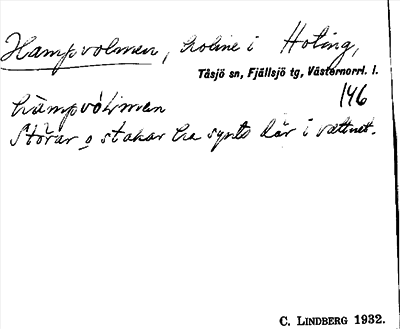 Hampvolmen, holme i Hoting,
Tåsjö sn, Fjällsjö tg, Västernorrl. l.
146
hàmpvòlmen
Störar o stakar ha synts där i vattnet.
C. LINDBERG 1932.